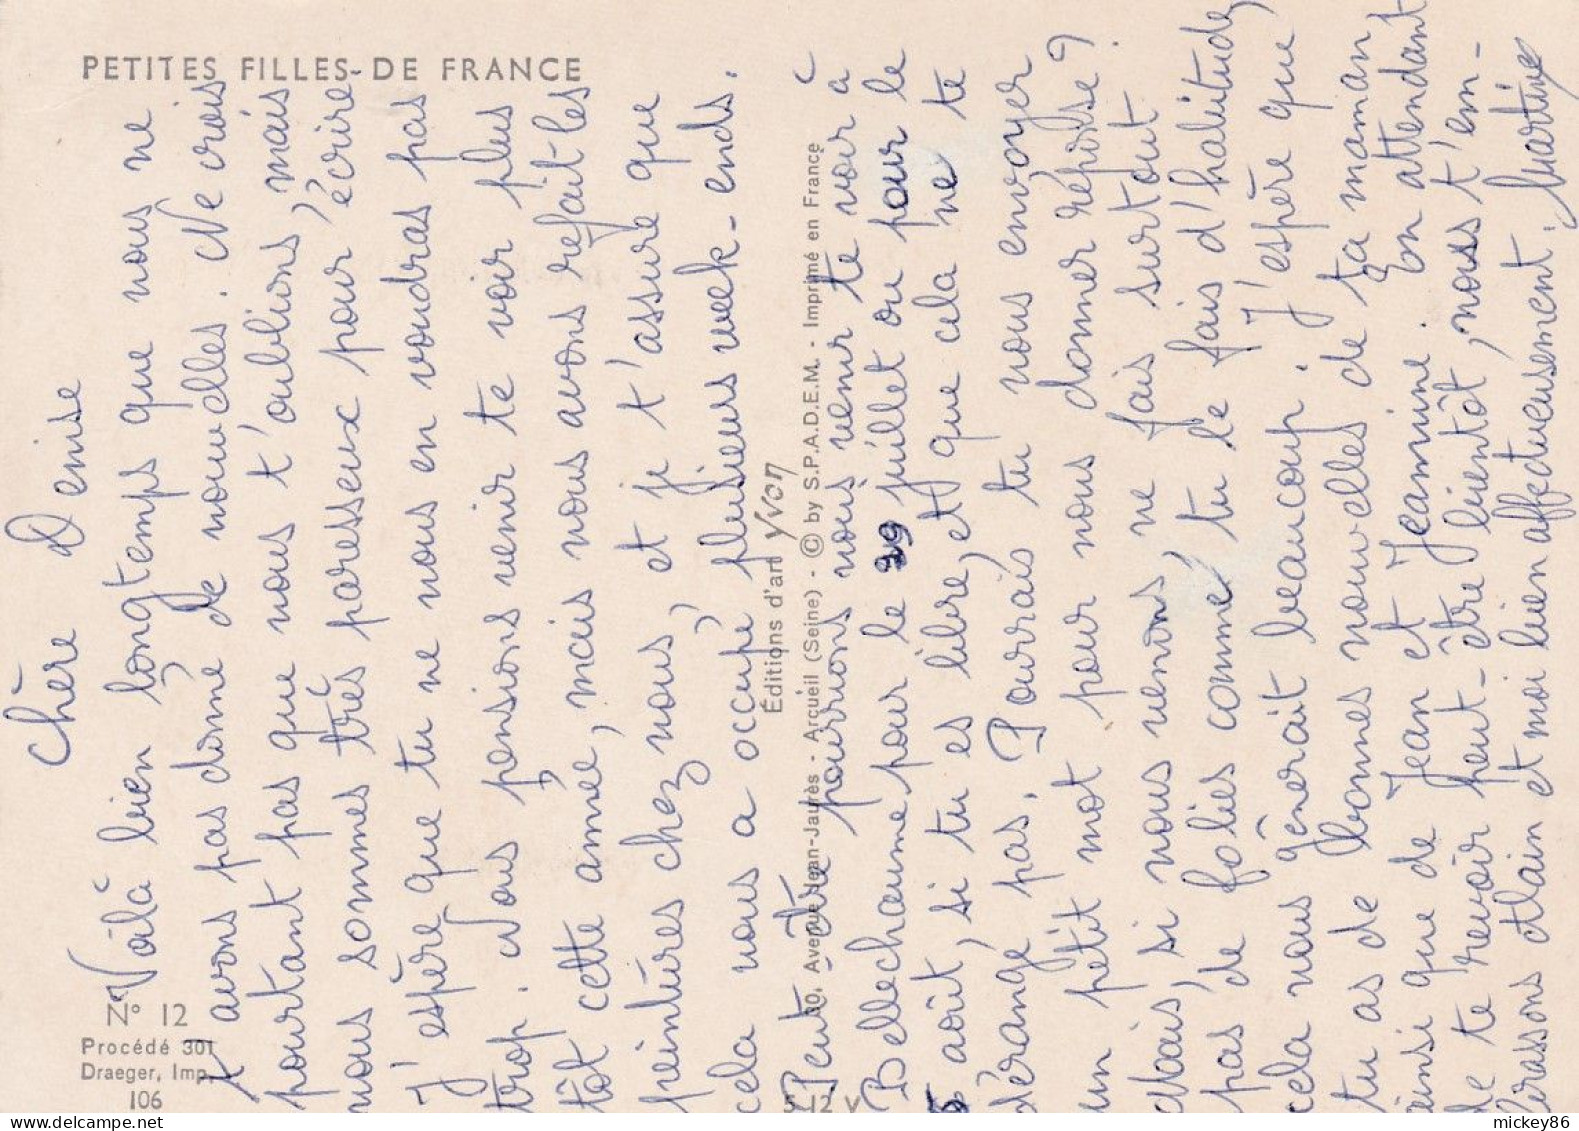 PETITES FILLES-DE FRANCE
N° 12
Procédé 301
Draeger, Imp.
106
Éditions d'art yvon
30, Avenue Jean-Jaurès - Arcueil (Seine) - © by S.P.A.D.E.M. - Imprimé en France
5-12 V
Chère Denise
Voilà bien longtemps que nous ne
t'avons pas donné de nouvelles. Ne crois
pourtant pas que nous t'oublions, mais
nous sommes très paresseux pour écrire
J'espère que tu ne nous en voudras pas
trop. Nous pensions venir te voir plus
tôt cette année, mais nous avons refait les
peintures chez nous, et je t'assure que
cela nous a occupé plusieurs week-ends.
Peut-être pourrions nous venir te voir à
Bellechaume pour le 29 juillet ou pour le
5 août, si tu es libre, et que cela ne te
dérange pas. Pourrais tu nous envoyer
un petit mot pour nous donner réponse?
Mais, si nous venons, ne fais surtout
pas de folies comme tu le fais d'habitude,
cela nous gènerait beaucoup. J'espère que
tu as de bonnes nouvelles de ta maman
ainsi que de Jean et Jeannine. En attendant
de te revoir peut-être bientôt, nous t'em-
brassons Alain et moi bien affectueusement. Martine
mickey86